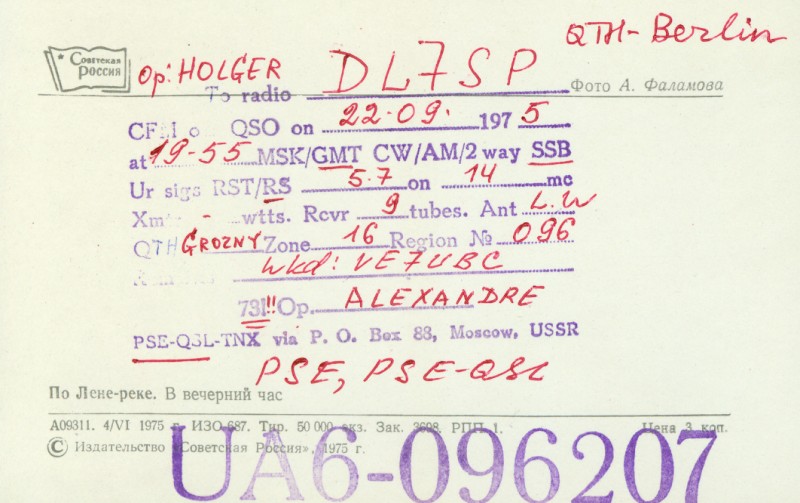 QTH-Berlin
Советская Россия
Op: HOLGER
To radio DL7SP
Фото А. Фаламова
QSO on 22-09. 1975
at 19-55 MSK/GMT CW/AM/2 way SSB
Ur sigs RST/RS 5.7 on 14 mc
wtts. Rcvr 9 tubes. Ant L.W
QTH GROZNY Zone 16 Region № 096
wkd: VE7UBC
73!!! Op. ALEXANDRE
PSE-QSL-TNX via P. O. Box 88, Moscow, USSR
PSE, PSE-QSL
По Лене-реке. В вечерний час
А09311. 4/VI 1975 г. ИЗО-687. Тир. 50 000 экз. Зак. 3698. РПП 1. Цена 3 коп.
© Издательство «Советская Россия», 1975 г.
UA6-096207